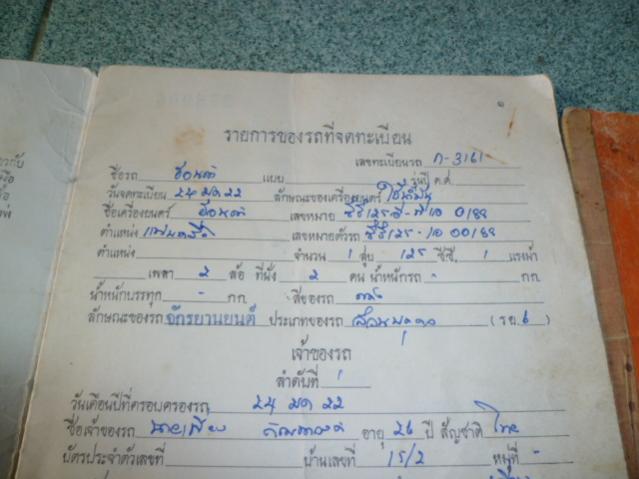 ๑
รายการของรถที่จดทะเบียน
เลขทะเบียนรถ ก-3161
ชื่อรถ ฮอนด้า แบบ รุ่นปี ค.ศ.
วันจดทะเบียน 24 มค 22 ลักษณะของเครื่องยนตร์ ใช้น้ำมัน
ชื่อเครื่องยนตร์ ฮอนด้า เลขหมาย ซีจี125
ตำแหน่ง เลขหมายตัวรถ ซีจี125-10 00188
ตำแหน่ง จำนวน 1 สูบ 125 ซีซี. 1 แรงม้า
เพลา 2 ล้อ ที่นั่ง 2 คน น้ำหนักรถ - กก.
น้ำหนักบรรทุก - กก. สีของรถ
ลักษณะของรถ จักรยานยนต์ ประเภทของรถ ส่วนบุคคล (รย.6)
เจ้าของรถ
ลำดับที่ 1
วันเดือนปีที่ครอบครองรถ 24 มค 22
ชื่อเจ้าของรถ นาย อายุ 26 ปี สัญชาติ ไทย
บัตรประจำตัวเลขที่ บ้านเลขที่ 15/2 หมู่ที่ -